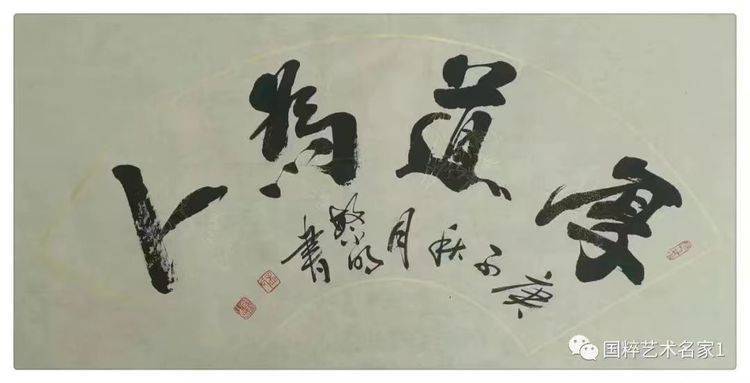 厚道為上
庚子秋月黎明書
国粹艺术名家1